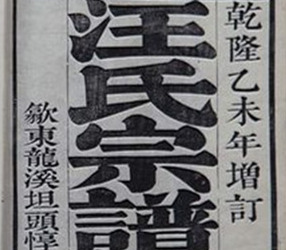 乾隆乙未年增訂
汪氏宗譜
歙東龍溪坦頭惇